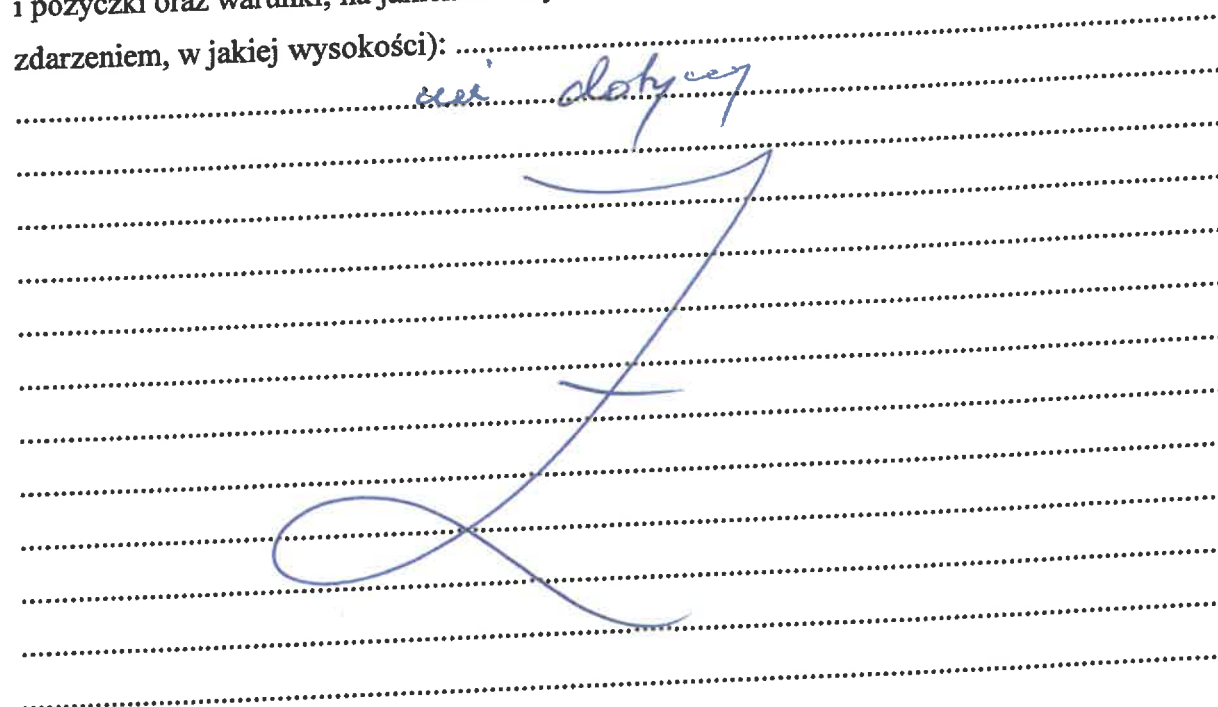 i pożyczki oraz warunki, na jakich
zdarzeniem, w jakiej wysokości): ......................................................
nie dotyczy